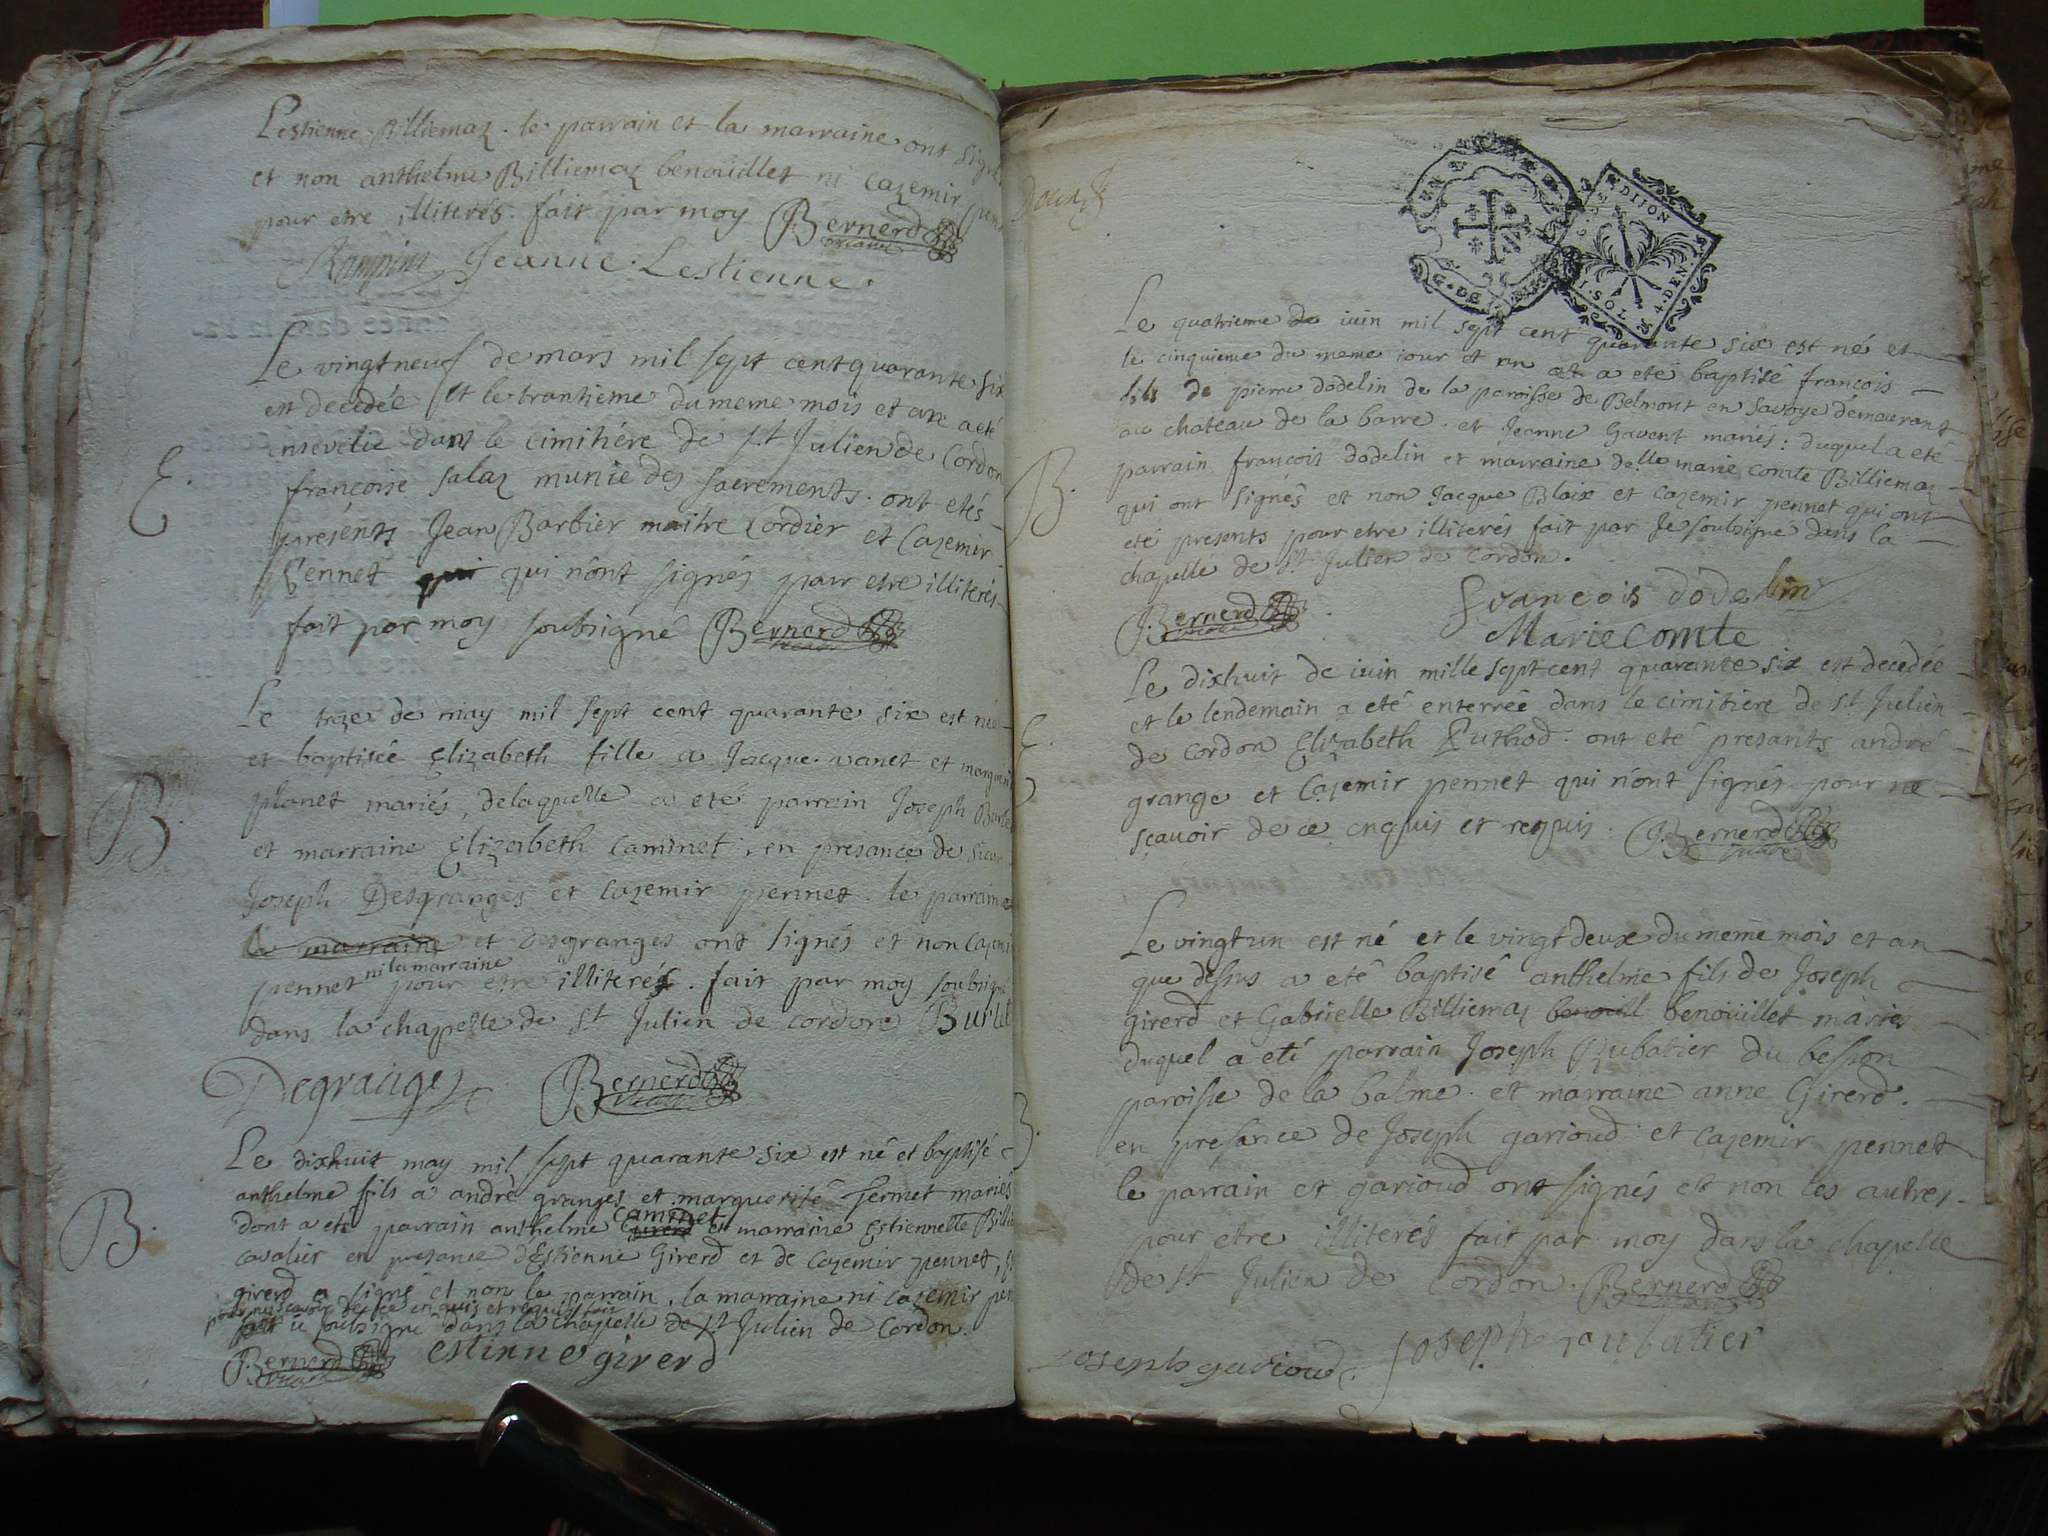 Lestienne Billiemaz. le parrain et la marraine ont
et non anthelme Billiemaz benoüillet ni Cazemir
pour etre illiterés. fait par moy Bernerd
vicaire
Jeanne. Lestienne.
Le vingtneuf de mars mil sept cent quarante six
est decedée et le trantieme du meme mois et an a eté
ensevelie dans le cimitiére de st Julien de Cordon
E.
françoise salaz munie des sacrements. ont etés
présents Jean Barbier maitre Cordier et Cazemir
pennet qui n'ont signés pour etre illiterés
fait par moy soubsigné Bernerd
vicaire
Le treze de may mil sept cent quarante six est née
et baptisée Elizabeth fille a Jacque vanet et
B.
planet mariés, delaquelle a eté parrain Joseph
et marraine Elizabeth Caminet, en presance de sieur
Joseph Desgranges et cazemir pennet. le parrain
la marraine et desgranges ont signés et non
ni la marraine
pennet pour etre illiterés. fait par moy soubsigné
dans la chapelle de st Julien de cordon Burlet
Degranges Bernerd
vicaire
Le dixhuit may mil sept quarante six est né et baptisé
anthelme fils a andré granges et marguerite fermet mariés
B.
Caminet
dont a eté parrain anthelme girerd et marraine Estiennette
cavalier en presance d'Estienne Girerd et de cazemir pennet,
girerd a signé et non le parrain, la marraine ni cazemir
pour ne scavoir de ce enquis et requis fait
par je soubsigné dans la chapelle de st Julien de Cordon.
Bernerd estienne girerd
vicaire
Douze
DIJON
I. SOL
4. DEN.
Le quatrieme de iuin mil sept cent quarante six est né et
le cinquieme du meme iour et an a eté baptisé françois
fils de pierre dodelin de la paroisse de Belmont en Savoye démeurant
au chateau de la barre. et Jeanne Gavent mariés: duquel a eté
parrain françois dodelin et marraine delle marie comte Billiemaz
B.
qui ont signés et non Jacque Blaix et cazemir pennet qui ont
eté presents pour etre illiterés fait par Je soubsigné dans la
chapelle de st Julien de Cordon.
françois dodelin
Bernerd
vicaire
Marie comte
Le dixhuit de iuin mille sept cent quarante six est decedée
et le lendemain a eté enterrée dans le cimitiere de st Julien
E.
de cordon Elizabeth Luthod. ont eté presants andré
grange et Cazemir pennet qui n'ont signés pour ne
sçavoir de ce enquis et requis. Bernerd
vicaire
Le vingt un est né et le vingt deux du meme mois et an
que dessus a eté baptisé anthelme fils de Joseph
girerd et Gabrielle Billiemaz benouill benoüillet mariés
duquel a eté parrain Joseph Rubatier du besson
paroisse de la balme. et marraine anne Girerd.
B.
en presance de Joseph garioud et cazemir pennet
le parrain et garioud ont signés et non les autres
pour etre illiterés fait par moy dans la chapelle
de st Julien de Cordon. Bernerd
vicaire
Joseph garioud. Joseph rubatier